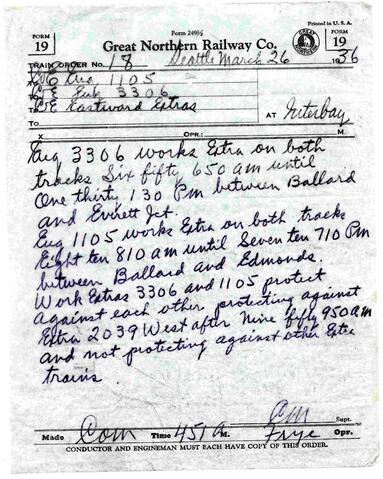 Printed in U. S. A.
FORM 19 Form 2493½ FORM 19
Great Northern Railway Co.
TRAIN ORDER No. 18 Seattle March 26 1936
To C&E Eng 1105
To C&E Eng 3306
To C&E Eastward Extras
To AT Interbay
X OPR.: M.
Eng 3306 works Extra on both
tracks Six fifty 650 am until
One thirty 130 Pm between Ballard
and Everett Jct.
Eng 1105 works Extra on both tracks
Eight ten 810 am until Seven ten 710 Pm
between Ballard and Edmonds.
Work Extras 3306 and 1105 protect
against each other protecting against
Extra 2039 West after Nine fifty 950 am
and not protecting against other Extra
trains
Supt.
Made Com Time 451 A M. Frye Opr.
CONDUCTOR AND ENGINEMAN MUST EACH HAVE COPY OF THIS ORDER.